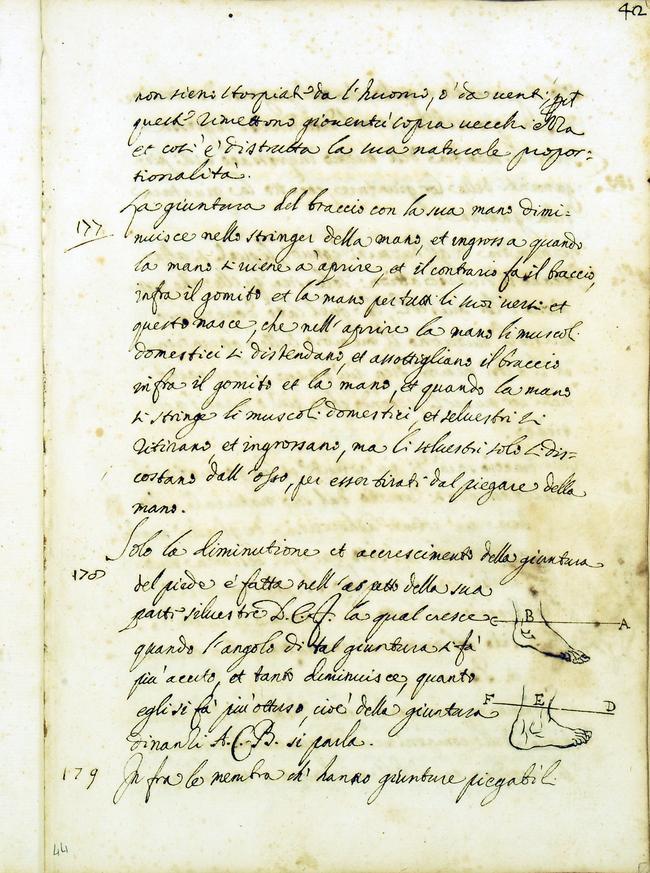 42
non sieno storpiati da l'huomo, ò da venti
questi rimettono gioventù sopra vecchi
et così è distrutta la sua naturale propor=
tionalità.
177 La giuntura del braccio con la sua mano dimi=
nuisce nello stringer della mano, et ingrossa quando
la mano si viene à aprire, et il contrario fa il braccio,
infra il gomito et la mano per tutti li suoi versi et
questo nasce, che nell'aprire la mano li muscoli
domestici si distendano, et assottigliano il braccio
infra il gomito et la mano, et quando la mano
si stringe li muscoli domestici, et selvestri si
ritirano, et ingrossano, ma li selvestri solo si dis=
costano dall'osso, per esser tirati dal piegare della
mano.
178 Solo la diminutione et accrescimento della giuntura
del piede è fatta nell'aspetto della sua
parte silvestre D.E.F. la qual cresce
quando l'angolo di tal giuntura si fà
più acuto, et tanto diminuisce, quanto
egli si fà più ottuso, cioè della giuntura
dinanzi A.C.B. si parla.
C B A
F E D
179 In fra le membra ch'hanno giunture piegabili
44